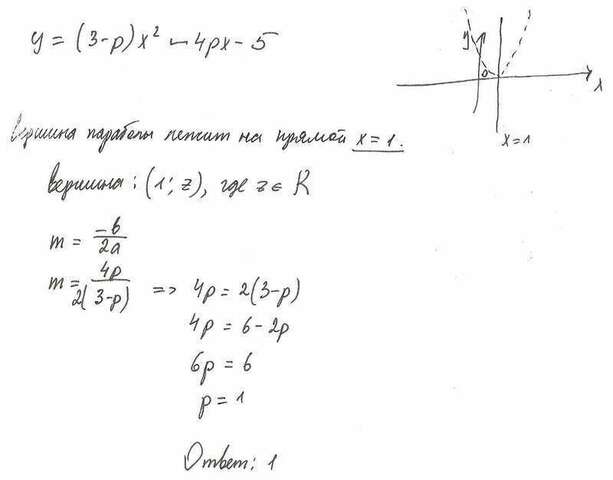 y = (3-p)x² - 4px - 5
y
0
x
x=1
Вершина параболы лежит на прямой x=1.
Вершина: (1; z), где z ∈ R
m = -b/2a
m = 4p/2(3-p) => 4p = 2(3-p)
4p = 6-2p
6p = 6
p = 1
Ответ: 1